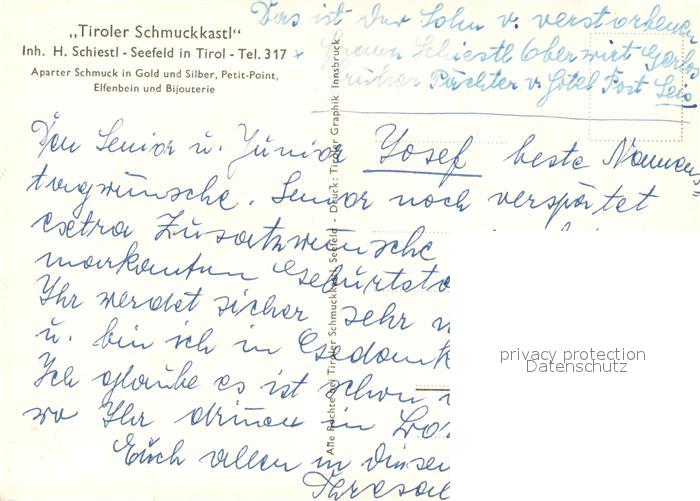 „Tiroler Schmuckkastl"
Inh. H. Schiestl - Seefeld in Tirol - Tel. 317
Aparter Schmuck in Gold und Silber, Petit-Point,
Elfenbein und Bijouterie
Das ist der Sohn v. verstorbenen
Schiestl Oberwirt Gerlos
früher Pächter v. Hotel Post
Den Senior u. Junior Josef beste Namens=
tagwünsche. Senior noch verspätet
extra Zusatzwünsche
markanten Geburtsta
Ihr werdet sicher sehr
u. bin ich in Gedank
Ich glaube es ist schon
wo Ihr drinnen in
Euch allen in dieser
Alle Rechte bei Tiroler Schmuckkastl Seefeld - Druck: Tiroler Graphik, Innsbruck
privacy protection
Datenschutz